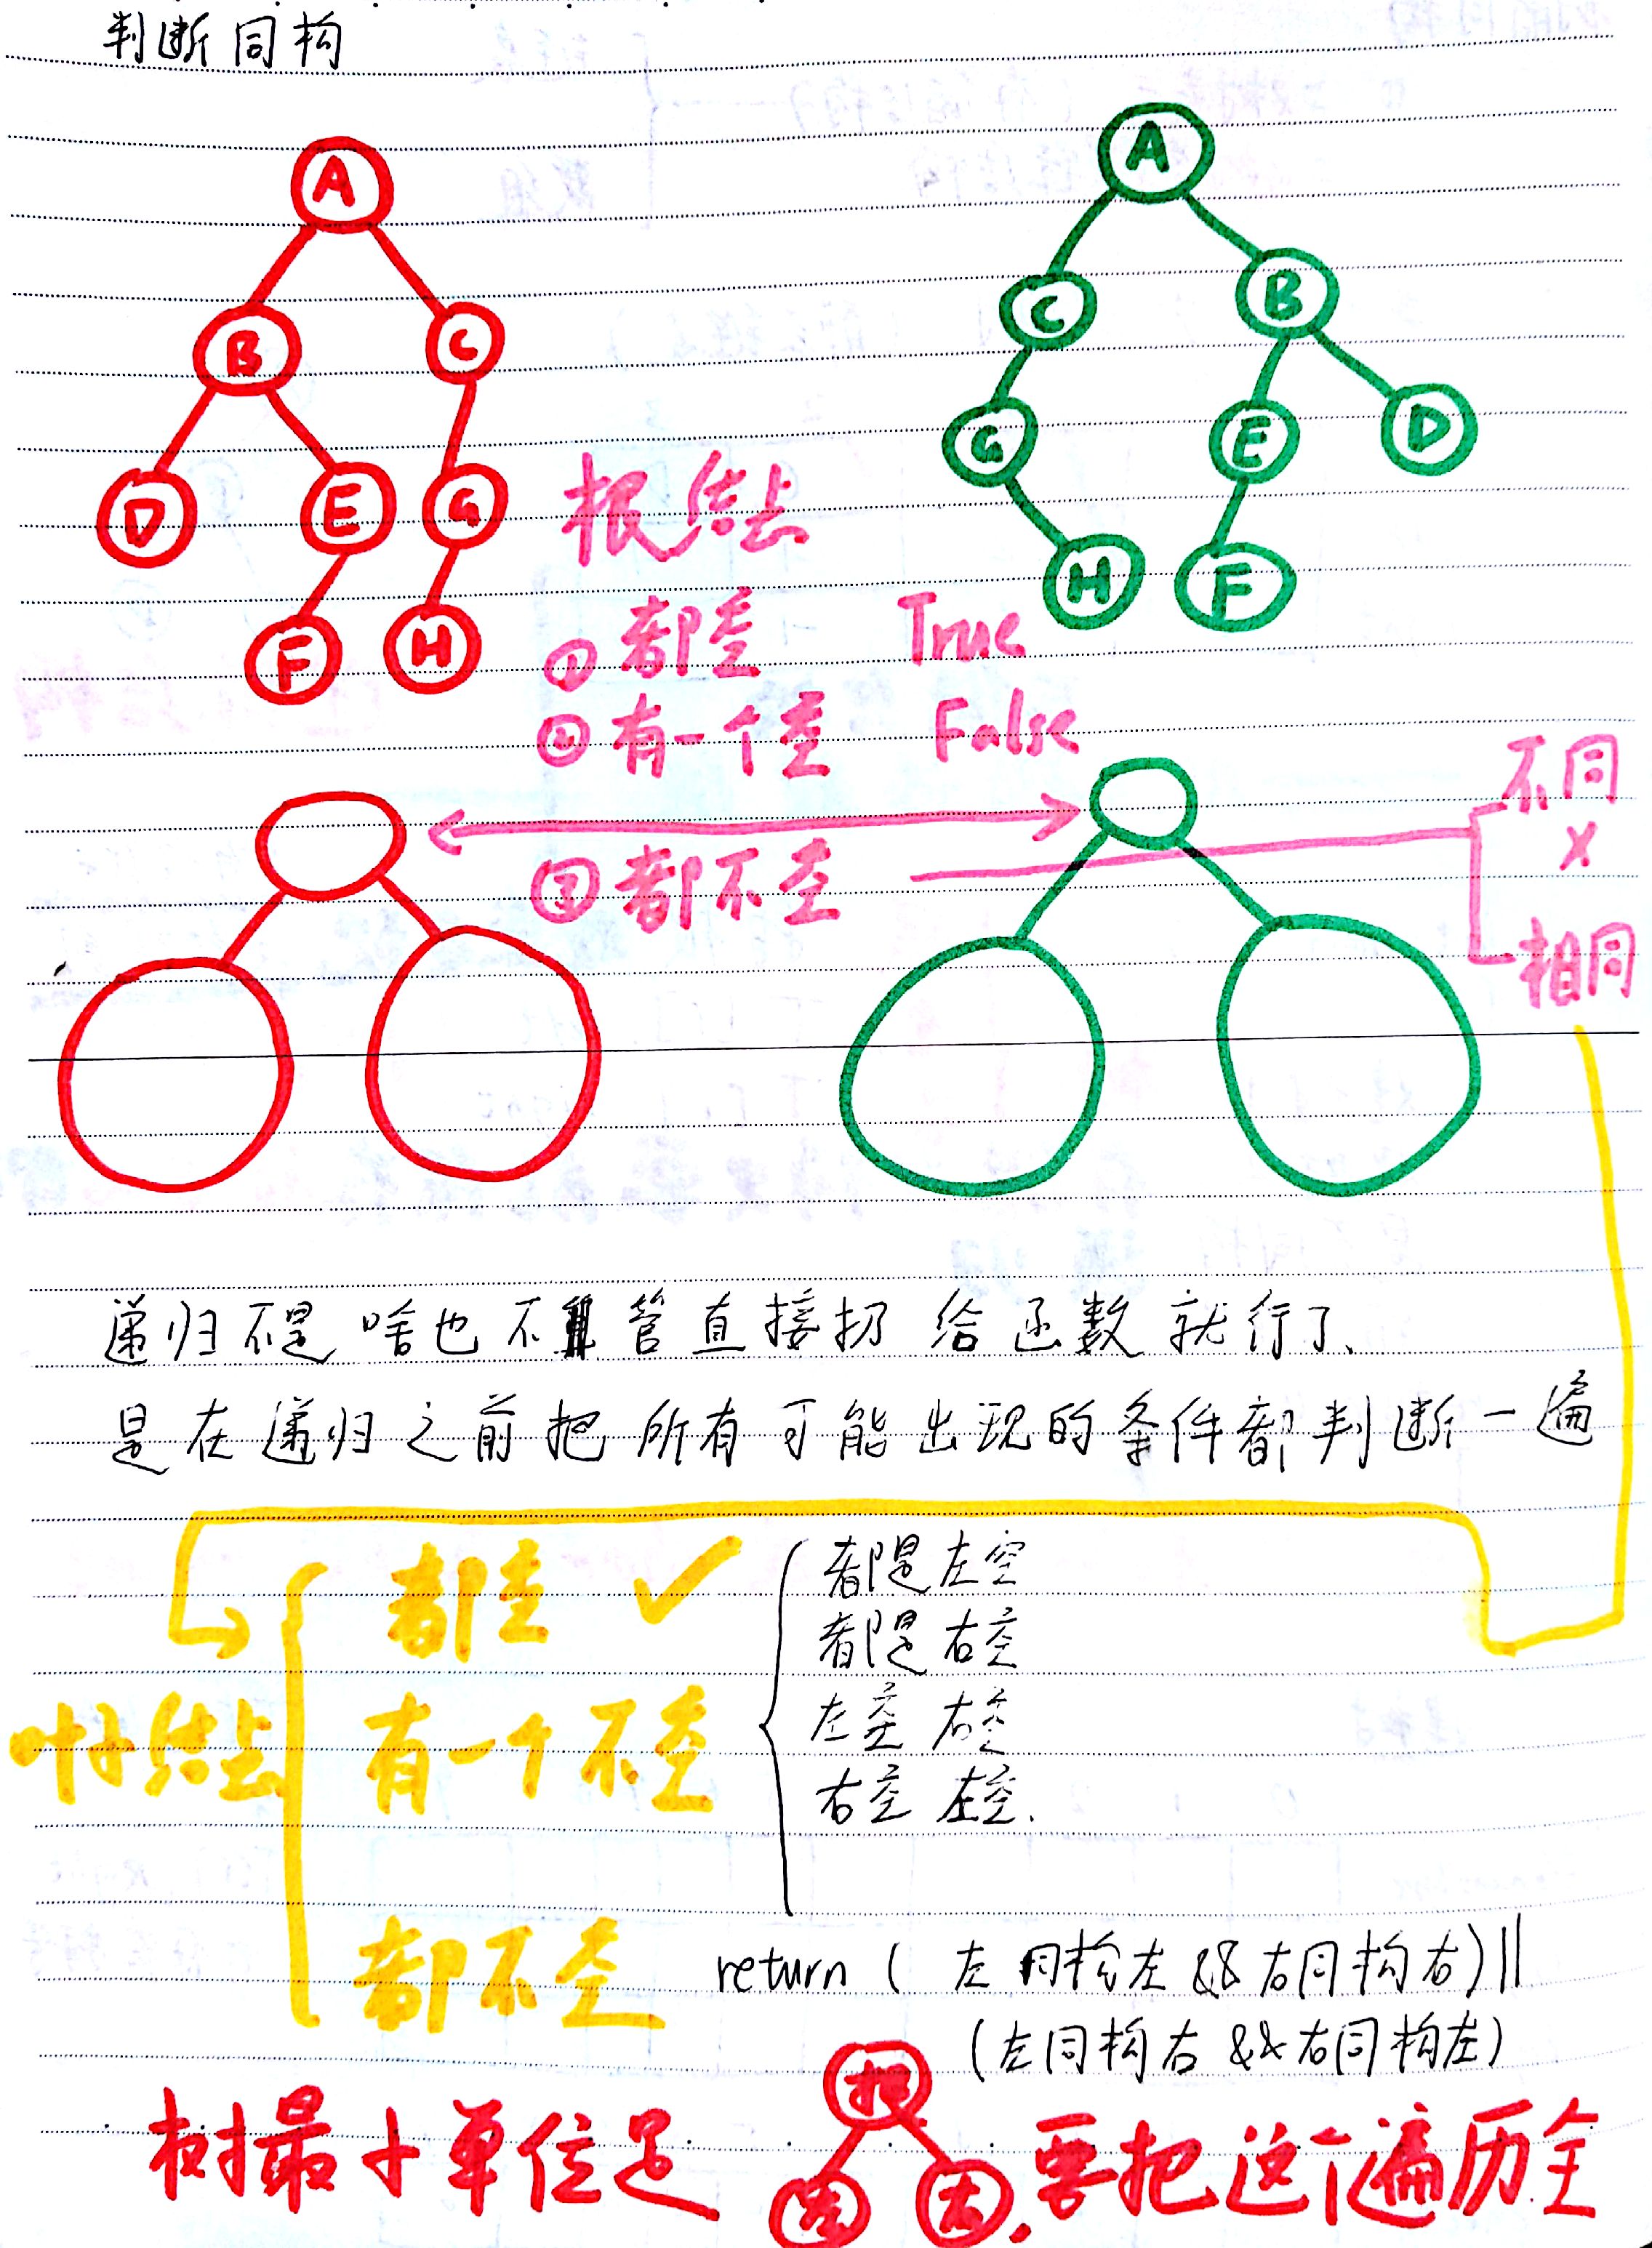 判断同构
A
A
B
C
C
B
D
E
G
G
E
D
F
H
H
F
根结点
① 都空 True
② 有一个空 False
③ 都不空
不同
×
相同
递归不是啥也不管直接扔给函数就行了、
是在递归之前把所有可能出现的条件都判断一遍
都空 ✓
叶子结点
有一个不空
都是左空
都是右空
左空 右空
右空 左空.
都不空
return ( 左同构左 && 右同构右)||
(左同构右 && 右同构左)
树最小单位是
根
左
右
.要把这个遍历全